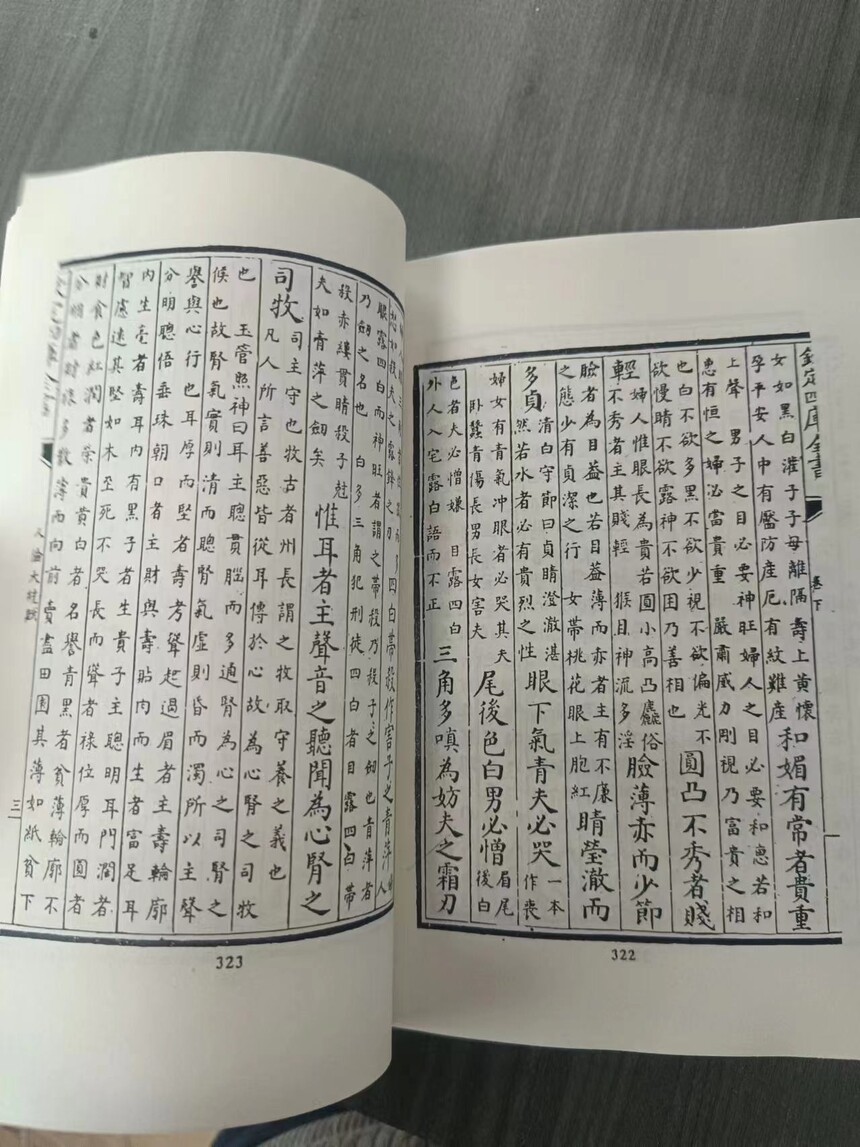 欽定四庫全書 卷下
女如黑白潅子子母離隔壽上黄懷
孕平安人中有黶防産厄有紋難産
和媚有常者貴重
上聲 男子之目必要神旺婦人之目必要和惠若和
惠有恒之婦必富貴重 嚴肅威力剛視乃富貴之相
也白不欲多黒不欲少視不欲偏光不
欲慢睛不欲露神不欲困乃善相也
圓凸不秀者賤
輕
婦人惟眼長為貴若圓小高凸麤俗
不秀者主其賤輕 猴目神流多淫
臉薄赤而少節
臉者為目葢也若目葢薄而赤者主有不廉
之態少有貞潔之行 女帶桃花眼上胞紅
睛瑩澈而
多貞
清白守節曰貞睛澄澈湛
然若水者必有貴烈之性
眼下氣青夫必哭
一本
作喪
婦女有青氣冲眼者必哭其夫
卧蠶青傷長男長女害夫
尾後色白男必憎
眉尾
後白
色者夫必憎嫌 目露四白
外人入宅露白語而不正
三角多嗔為妨夫之霜刃
322
四白帶殺作害子之青萍
眼露四白而神旺者謂之帶殺乃殺子之劒也青萍者
乃劒之名也 白多三角犯刑徒四白者目露四白帶
殺赤縷貫睛殺子尅
夫如青萍之劒矣
惟耳者主聲音之聽聞為心腎之
司牧
司主守也牧古者州長謂之牧取守養之義也
凡人所言善惡皆從耳傳於心故為心腎之司牧
也 玉管照神曰耳主聰貫腦而多通腎為心之司腎之
候也故腎氣實則清而聰腎氣虛則昏而濁所以主聲
譽與心行也耳厚而堅者壽考聳起過眉者主壽輪廓
分明聰悟垂珠朝口者主財與壽貼肉而生者富足耳
内生毫者壽耳内有黒子者生貴子主聰明耳門濶者
智慮遠其堅如木至死不哭長而聳者祿位厚而圓者
財食色紅潤者榮貴黄白者名譽青黑者貧薄輪廓不
分明者財根多散薄而向前賣盡田園其薄如紙貧下
人倫大統賦
三
323